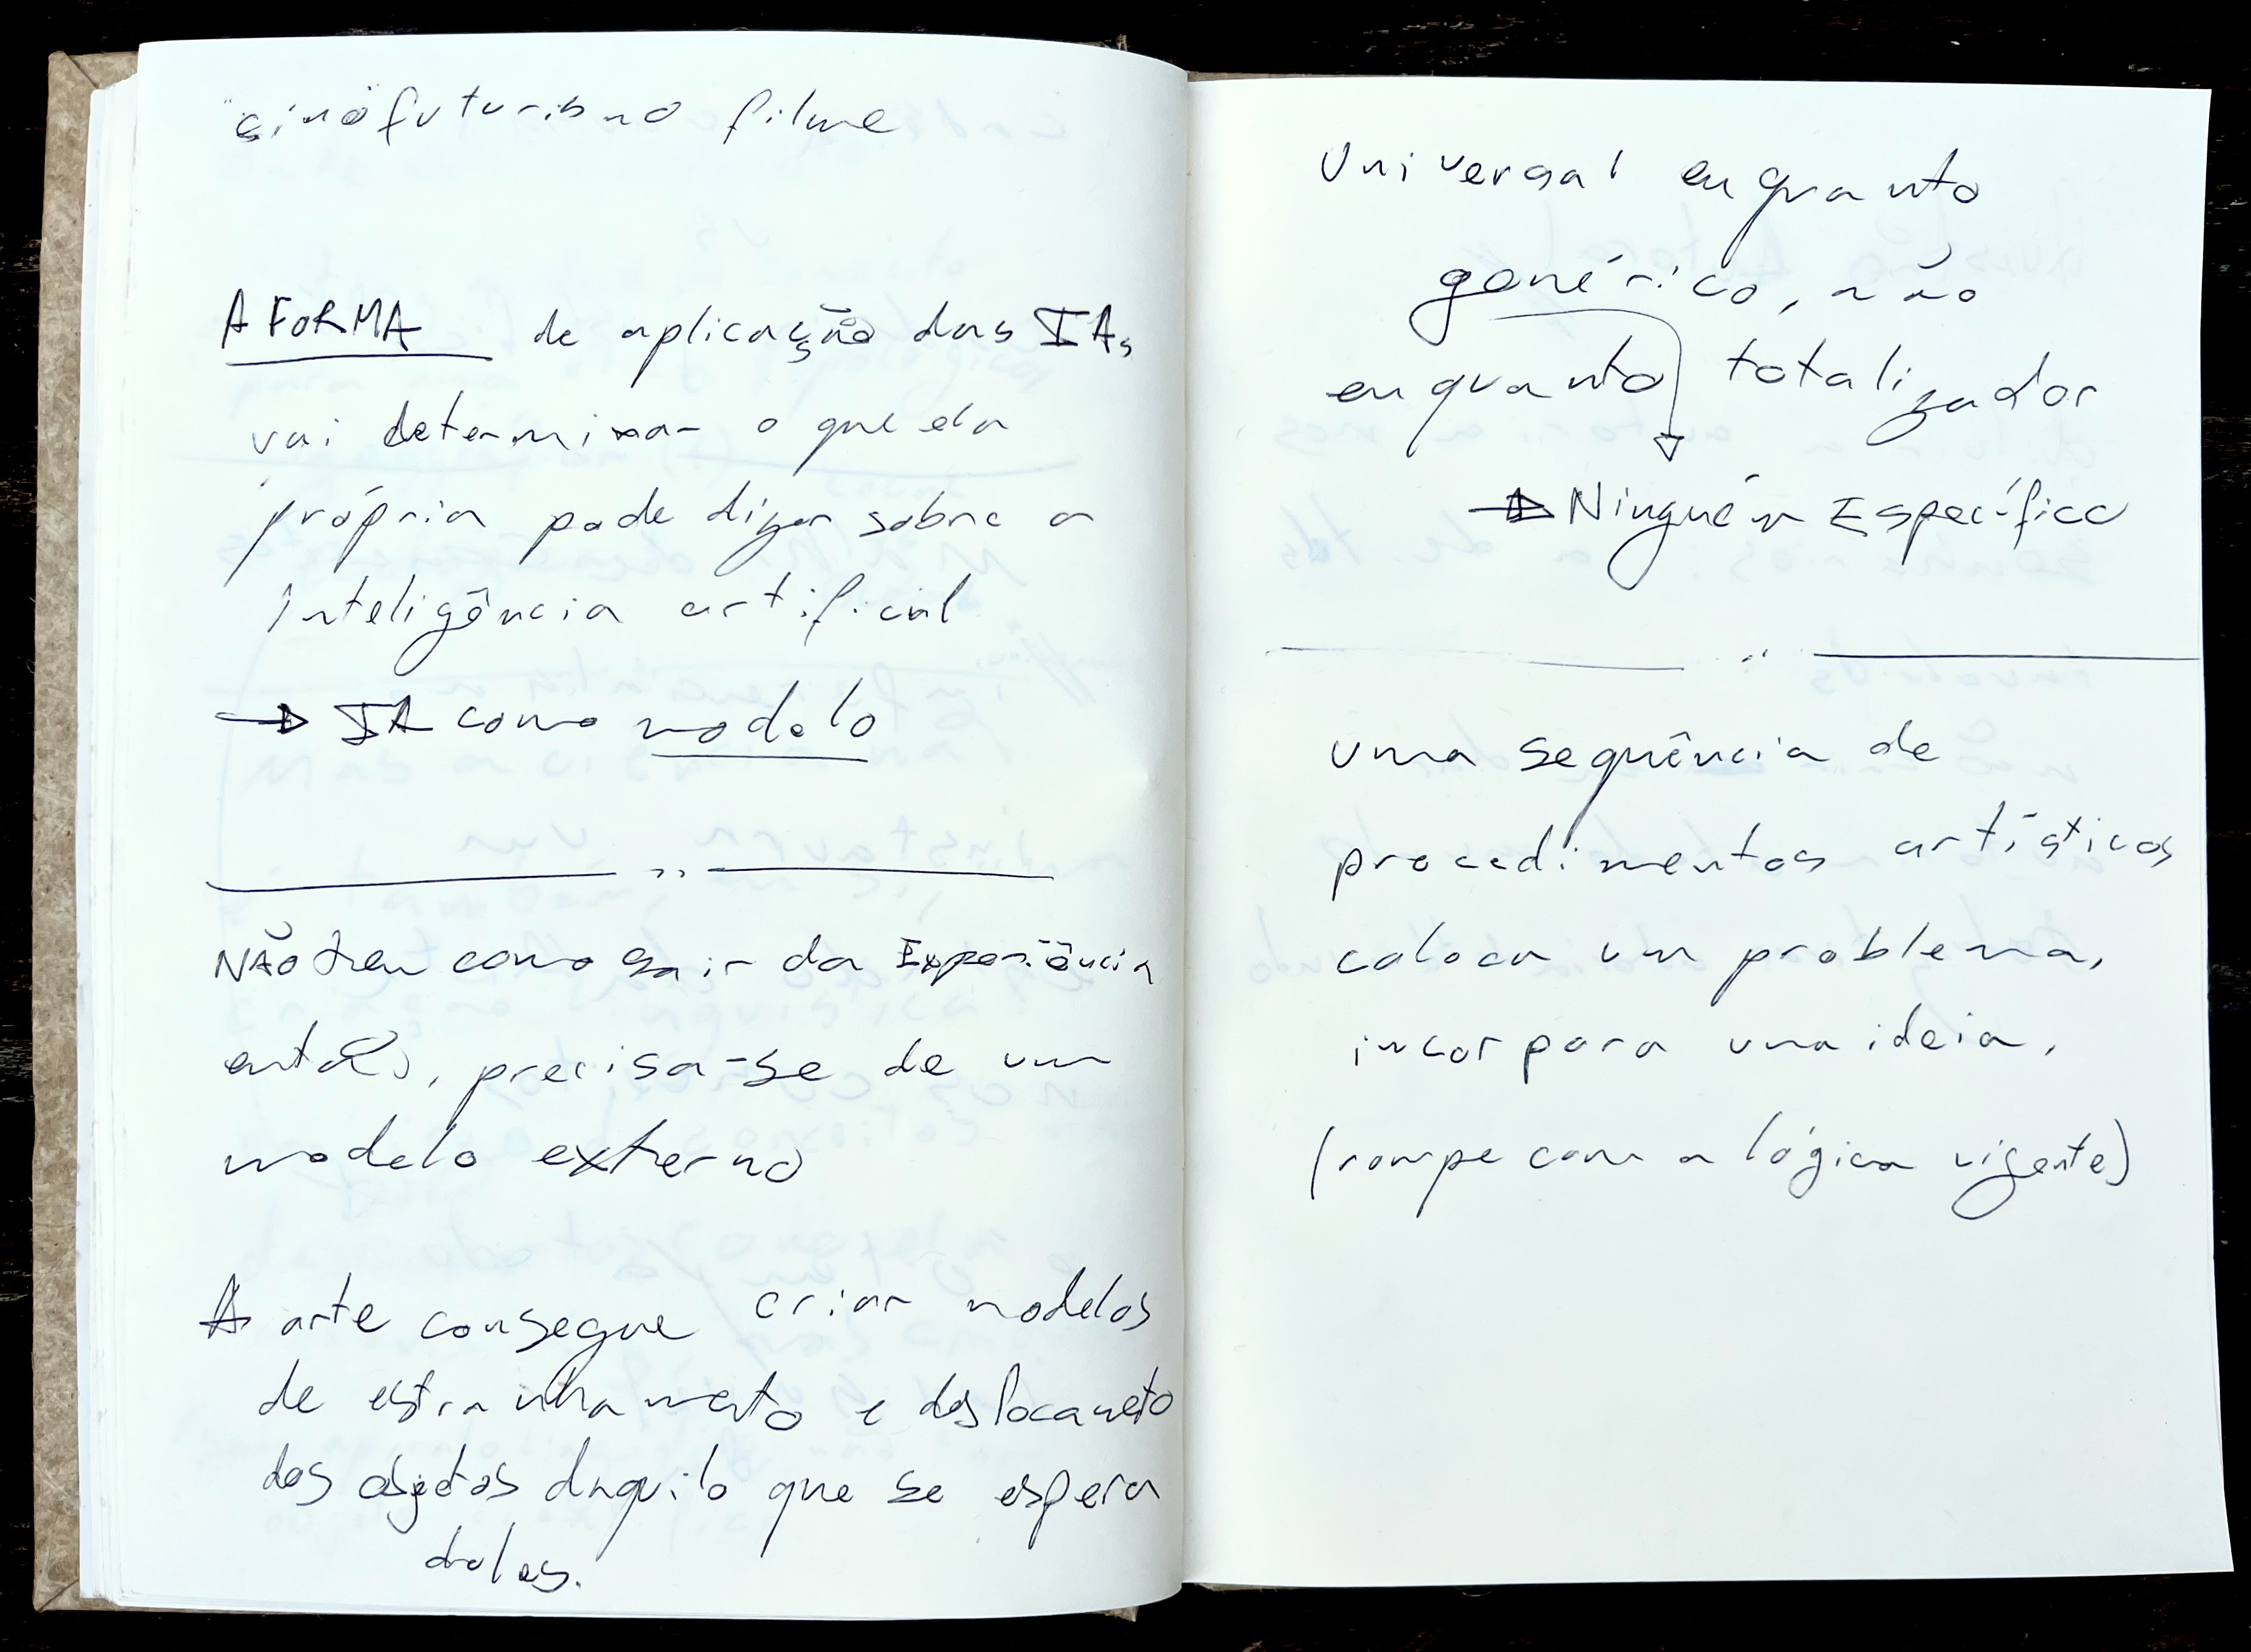 "sinofuturismo filme
A FORMA de aplicação das IAs
vai determinar o que ela
própria pode dizer sobre a
inteligência artificial
→ IA como modelo
NÃO tem como sair da Experiência
então, precisa-se de um
modelo externo
A arte consegue criar modelos
de estranhamento e deslocameto
dos objetos daquilo que se espera
deles.
Universal enquanto
genérico, não
enquanto totalizador
→ Ninguém Específico
uma sequência de
procedimentos artísticos
coloca um problema,
incorpora uma ideia,
(rompe com a lógica vigente)